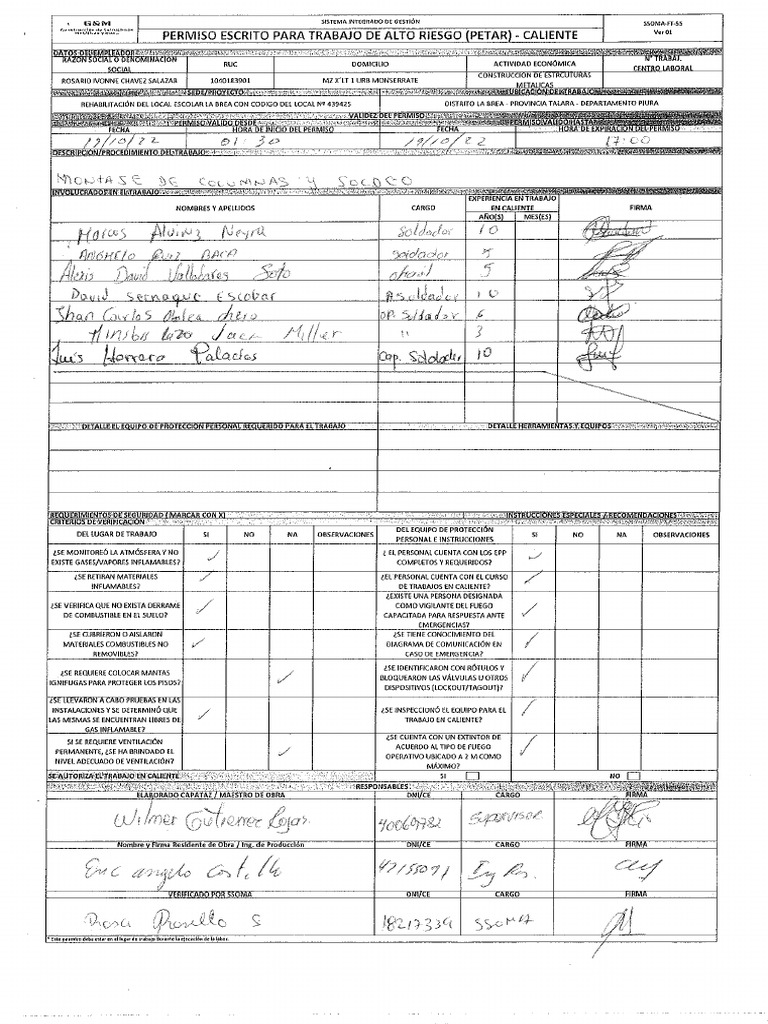 G&M
SISTEMA INTEGRADO DE GESTIÓN
PERMISO ESCRITO PARA TRABAJO DE ALTO RIESGO (PETAR) - CALIENTE
SSOMA-FT-55
Ver 01
DATOS DEL EMPLEADOR
RAZON SOCIAL O DENOMINACION SOCIAL RUC DOMICILIO ACTIVIDAD ECONÓMICA N° TRABAJ. CENTRO LABORAL
ROSARIO IVONNE CHAVEZ SALAZAR 1040183901 MZ X LT 1 URB MONSERRATE CONSTRUCCION DE ESTRUCTURAS METALICAS
SEDE/PROYECTO UBICACIÓN DE TRABAJO
REHABILITACIÓN DEL LOCAL ESCOLAR LA BREA CON CODIGO DEL LOCAL Nº 439425 DISTRITO LA BREA - PROVINCIA TALARA - DEPARTAMENTO PIURA
VALIDEZ DEL PERMISO
PERMISO VALIDO DESDE PERMISO VALIDO HASTA
FECHA HORA DE INICIO DEL PERMISO FECHA HORA DE EXPIRACIÓN DEL PERMISO
19/10/22 01:30 19/10/22 17:00
DESCRIPCION/PROCEDIMIENTO DEL TRABAJO
MONTAJE DE COLUMNAS Y
INVOLUCRADO EN EL TRABAJO
NOMBRES Y APELLIDOS CARGO EXPERIENCIA EN TRABAJO EN CALIENTE FIRMA
AÑO(S) MES(ES)
Marcos Neyra Soldador 10
Ruiz soldador 5
Alexis David Valladares Soto oficial 5
David sernaque Escobar A.Soldador 10
Jhan Carlos OP. Soldador 6
Jaen Miller " 3
Luis Herrera Palacios Cap. Soldador 10
DETALLE EL EQUIPO DE PROTECCION PERSONAL REQUERIDO PARA EL TRABAJO DETALLE HERRAMIENTAS Y EQUIPOS
REQUERIMIENTOS DE SEGURIDAD (MARCAR CON X) INSTRUCCIONES ESPECIALES / RECOMENDACIONES
CRITERIOS DE VERIFICACIÓN
DEL LUGAR DE TRABAJO SI NO NA OBSERVACIONES DEL EQUIPO DE PROTECCIÓN PERSONAL E INSTRUCCIONES SI NO NA OBSERVACIONES
¿SE MONITOREÓ LA ATMÓSFERA Y NO EXISTE GASES/VAPORES INFLAMABLES? ✓ ¿ EL PERSONAL CUENTA CON LOS EPP COMPLETOS Y REQUERIDOS? ✓
¿SE RETIRAN MATERIALES INFLAMABLES? ✓ ¿EL PERSONAL CUENTA CON EL CURSO DE TRABAJOS EN CALIENTE? ✓
¿SE VERIFICA QUE NO EXISTA DERRAME DE COMBUSTIBLE EN EL SUELO? ✓ ¿EXISTE UNA PERSONA DESIGNADA COMO VIGILANTE DEL FUEGO CAPACITADA PARA RESPUESTA ANTE EMERGENCIAS? ✓
¿SE CUBRIERON O AISLARON MATERIALES COMBUSTIBLES NO REMOVIBLES? ✓ ¿SE TIENE CONOCIMIENTO DEL DIAGRAMA DE COMUNICACIÓN EN CASO DE EMERGENCIA? ✓
¿SE REQUIERE COLOCAR MANTAS IGNIFUGAS PARA PROTEGER LOS PISOS? ✓ ¿SE IDENTIFICARON CON RÓTULOS Y BLOQUEARON LAS VÁLVULAS U OTROS DISPOSITIVOS (LOCKOUT/TAGOUT)? ✓
¿SE LLEVARON A CABO PRUEBAS EN LAS INSTALACIONES Y SE DETERMINÓ QUE LAS MISMAS SE ENCUENTRAN LIBRES DE GAS INFLAMABLE? ✓ ¿SE INSPECCIONÓ EL EQUIPO PARA EL TRABAJO EN CALIENTE? ✓
SI SE REQUIERE VENTILACIÓN PERMANENTE, ¿SE HA BRINDADO EL NIVEL ADECUADO DE VENTILACIÓN? ✓ ¿SE CUENTA CON UN EXTINTOR DE ACUERDO AL TIPO DE FUEGO OPERATIVO UBICADO A 2 M COMO MÁXIMO? ✓
SE AUTORIZA EL TRABAJO EN CALIENTE SI NO
RESPONSABLES
ELABORADO CAPATAZ / MAESTRO DE OBRA DNI/CE CARGO FIRMA
Wilmer Gutierrez Rojas 40069782 Supervisor
Nombre y Firma Residente de Obra / Ing. de Producción DNI/CE CARGO FIRMA
Eric angelo Costilla 47155071 Ing Res.
VERIFICADO POR SSOMA DNI/CE CARGO FIRMA
Rosa S 18217339 SSOMA
* Este permiso debe estar en el lugar de trabajo durante la ejecución de la labor.